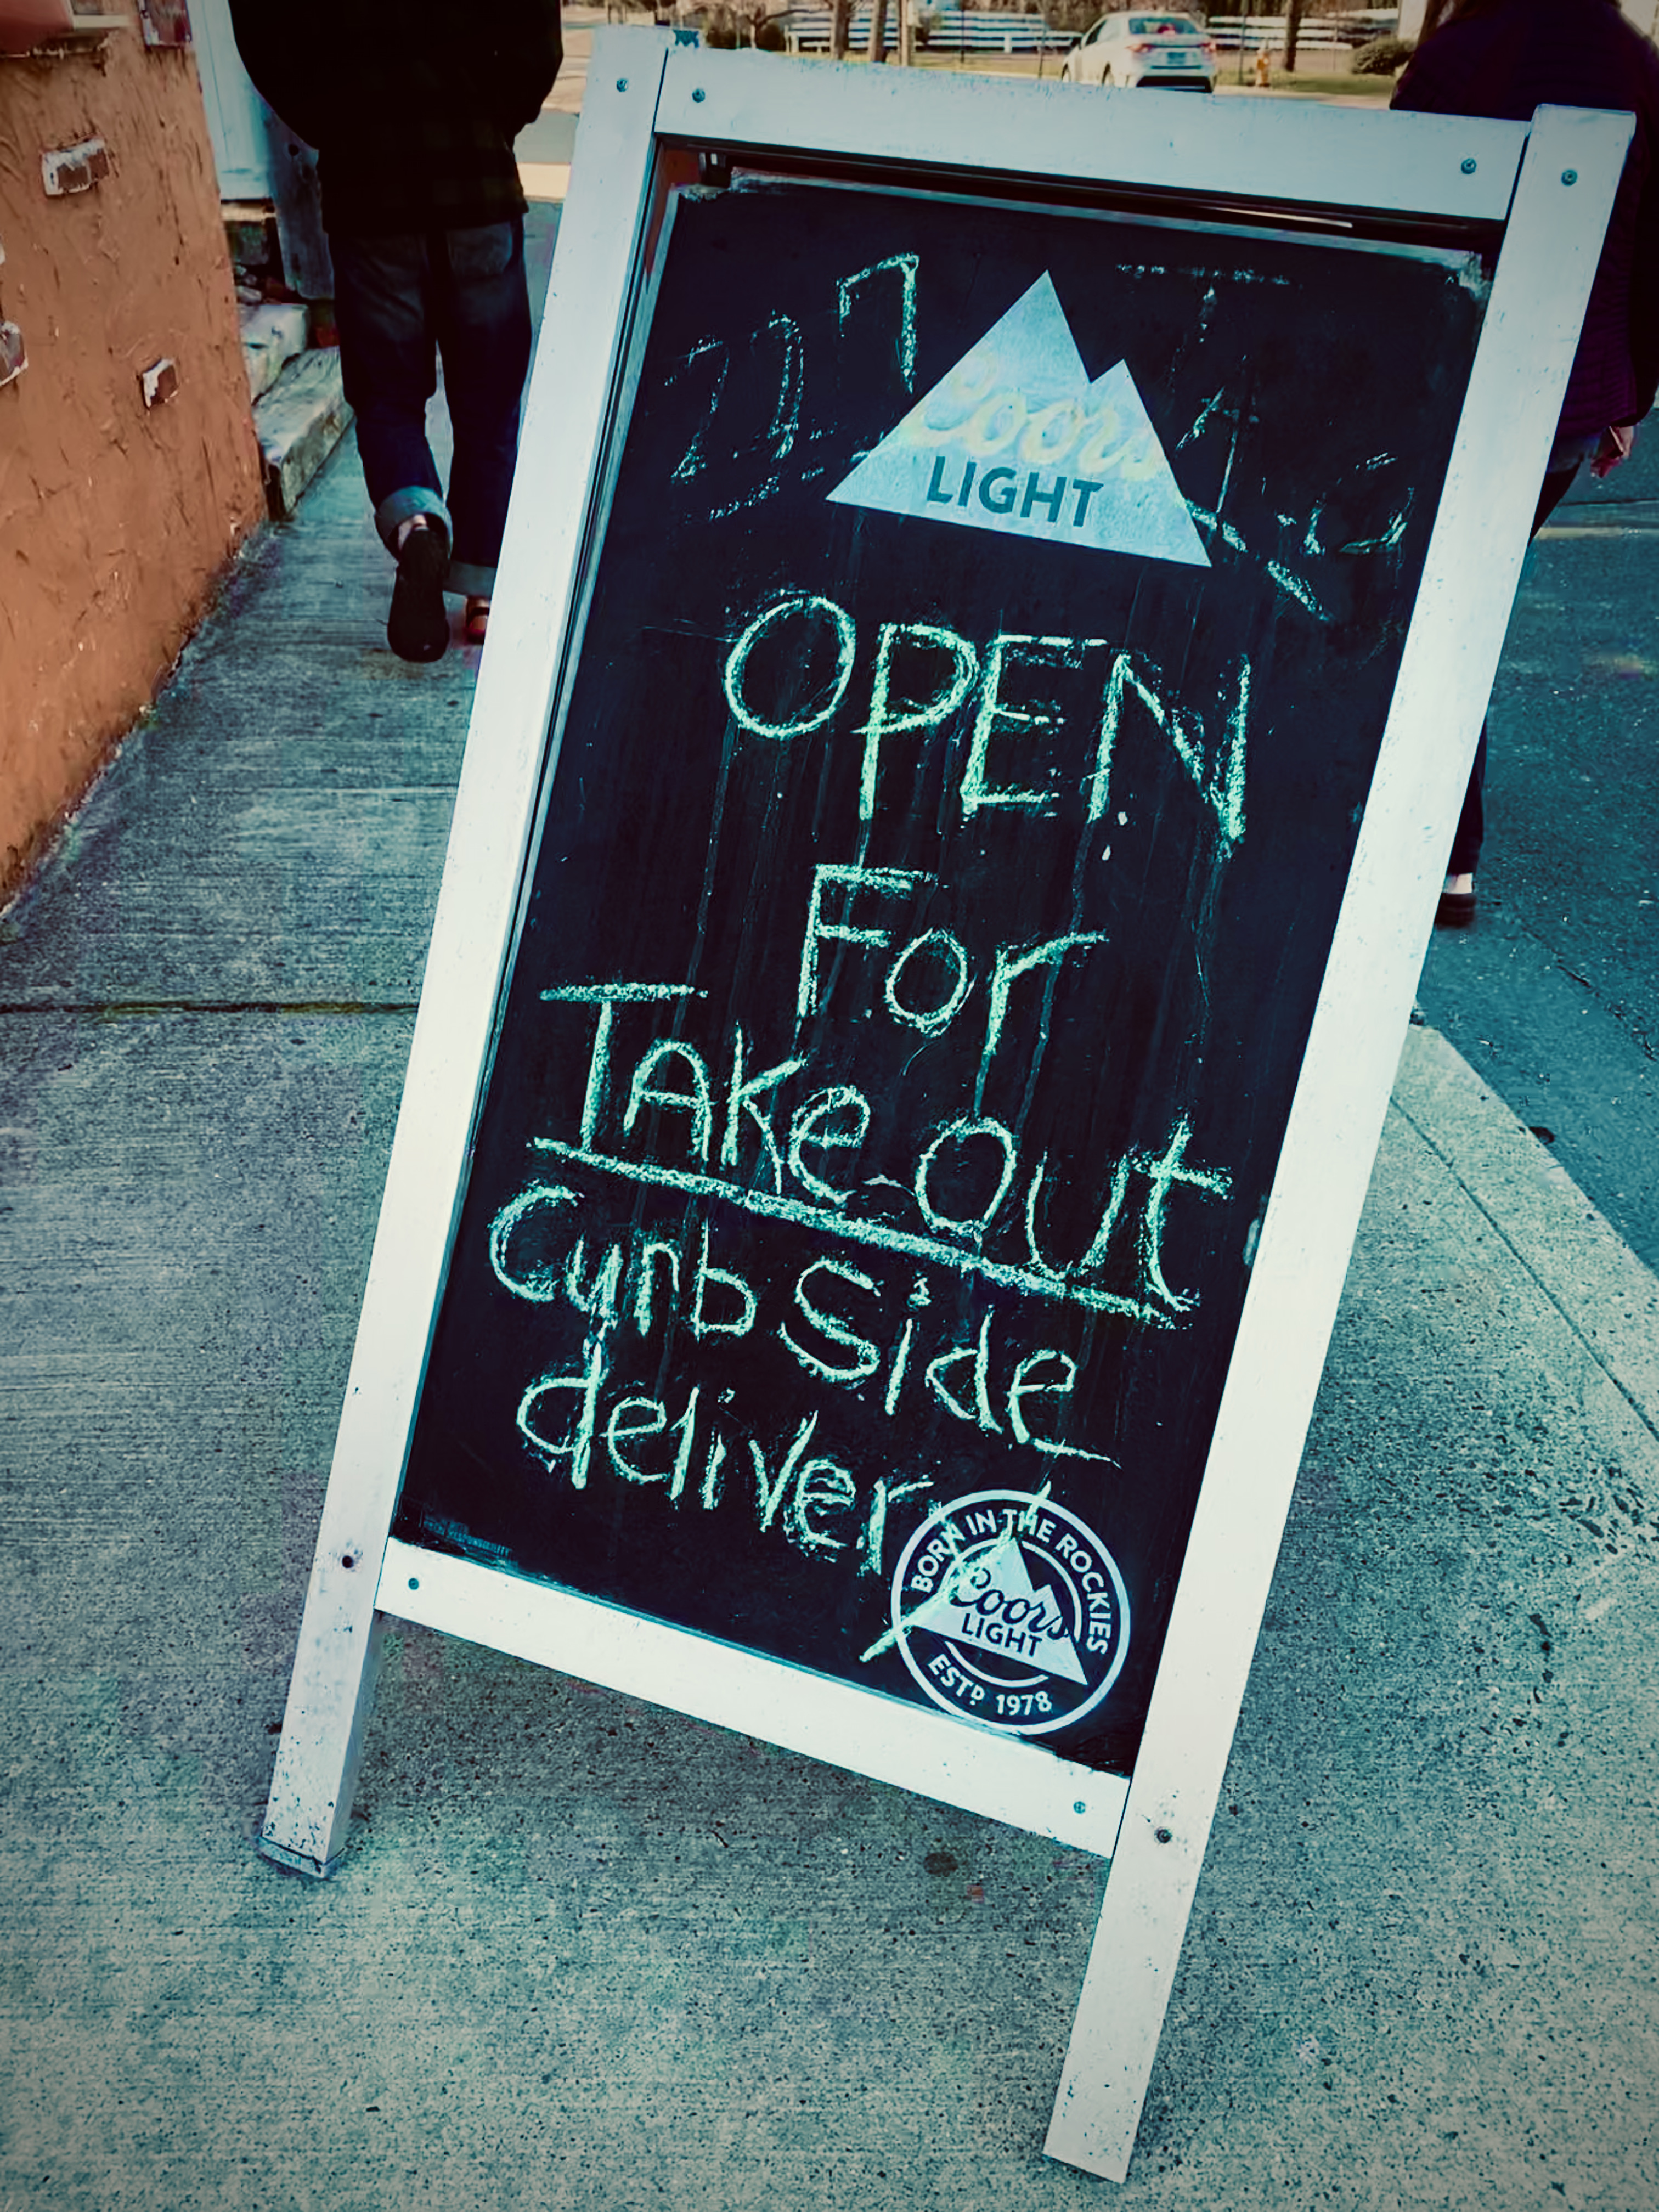 Coors
LIGHT
OPEN
For
TAke Out
Curb Side
delivery
BORN IN THE ROCKIES
Coors
LIGHT
ESTD 1978